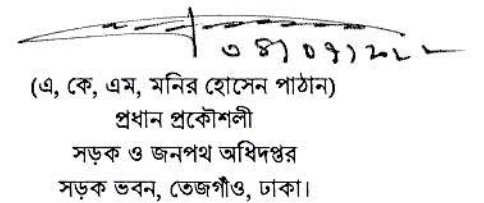 (এ, কে, এম, মনির হোসেন পাঠান)
প্রধান প্রকৌশলী
সড়ক ও জনপথ অধিদপ্তর
সড়ক ভবন, তেজগাঁও, ঢাকা।